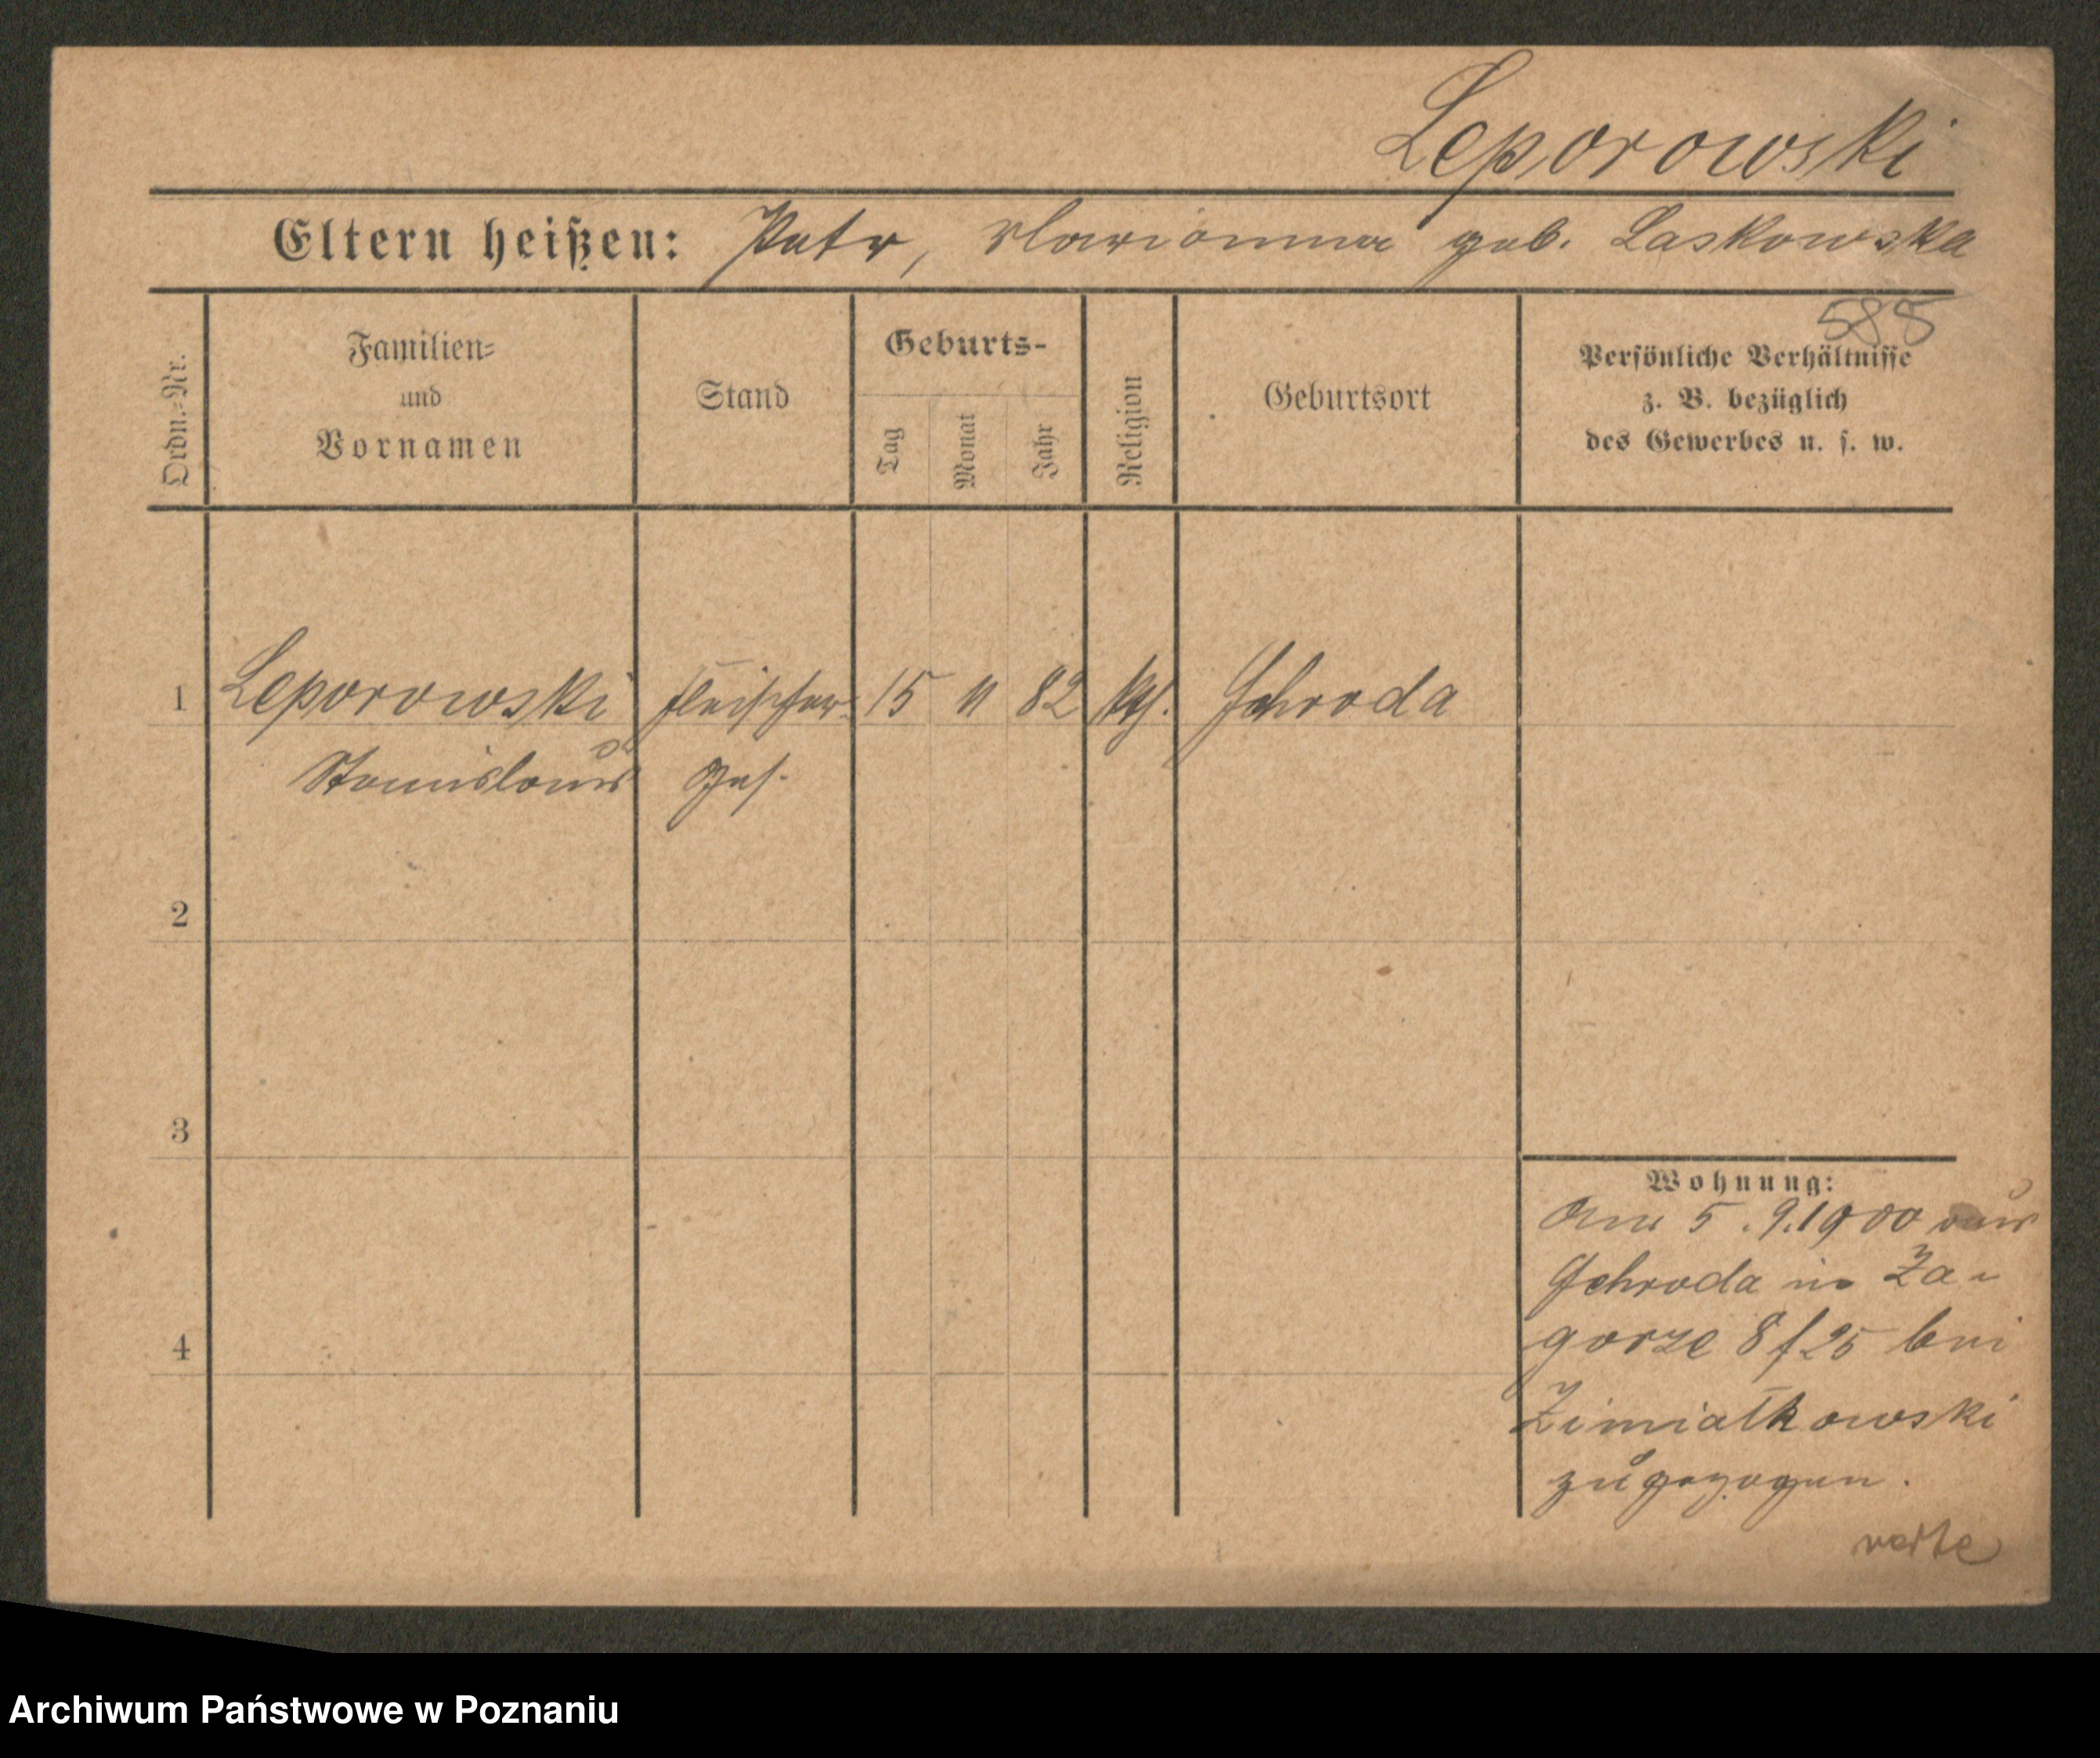 Leporowski
Eltern heißen: Peter, Marianna geb. Laskowska
585
Ordn.-Nr.
Familien-
und
Vornamen
Stand
Geburts-
Tag
Monat
Jahr
Religion
Geburtsort
Persönliche Verhältnisse
z. B. bezüglich
des Gewerbes u. s. w.
1 Leporowski Fleischer- 15 11 82 kth. Schroda
Stanislaus Ges.
2
3
4
Wohnung:
Am 5.9.1900 aus
Schroda in Za-
gorze 8 f 25 bei
Zimiatkowski
zugezogen.
Archiwum Państwowe w Poznaniu